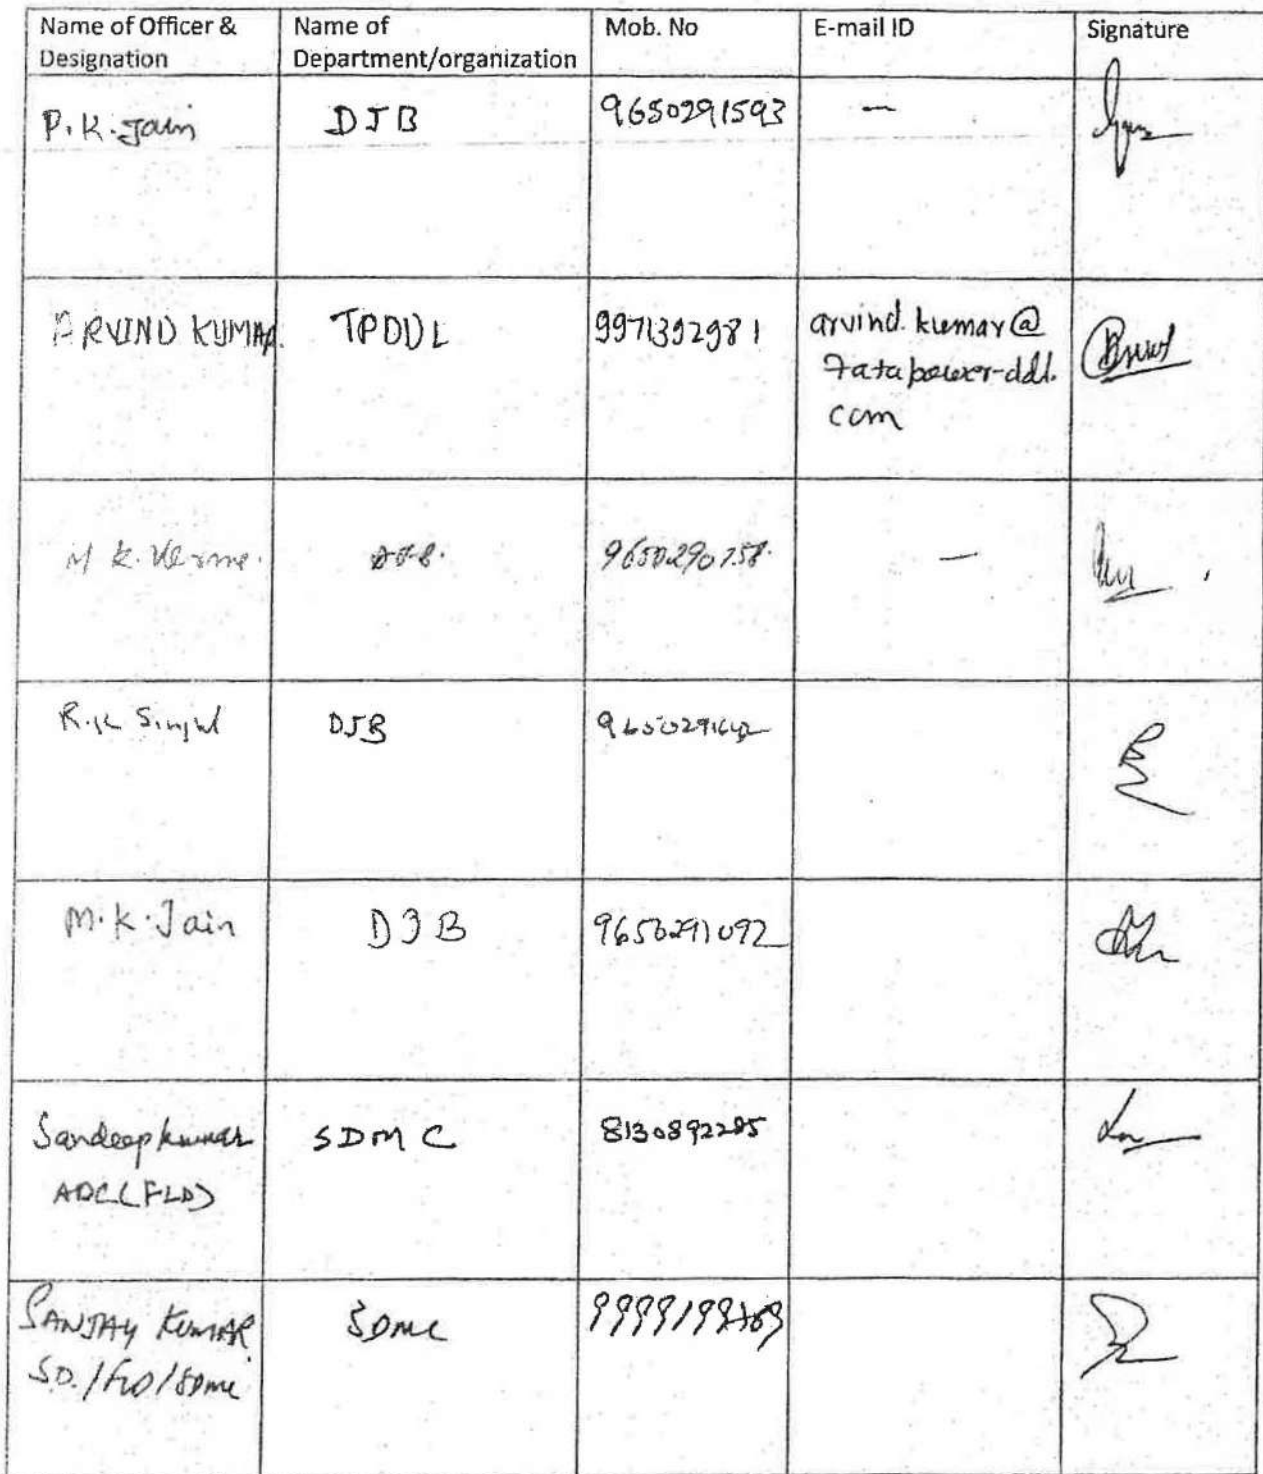 Name of Officer &
Designation
Name of
Department/organization
Mob. No
E-mail ID
Signature
P.K. Jain
DJB
9650291593
—
ARVIND KUMAR
TPDDL
9971392981
arvind.kumar@
tatapower-ddl.
com
M K. Verma.
9650290758.
—
R.K Singhal
DJB
M.K. Jain
DJB
9650291092
Sandeep Kumar
ADC(FLD)
SDMC
8130892285
SANJAY KUMAR
SO./FLD/SDMC
SDMC